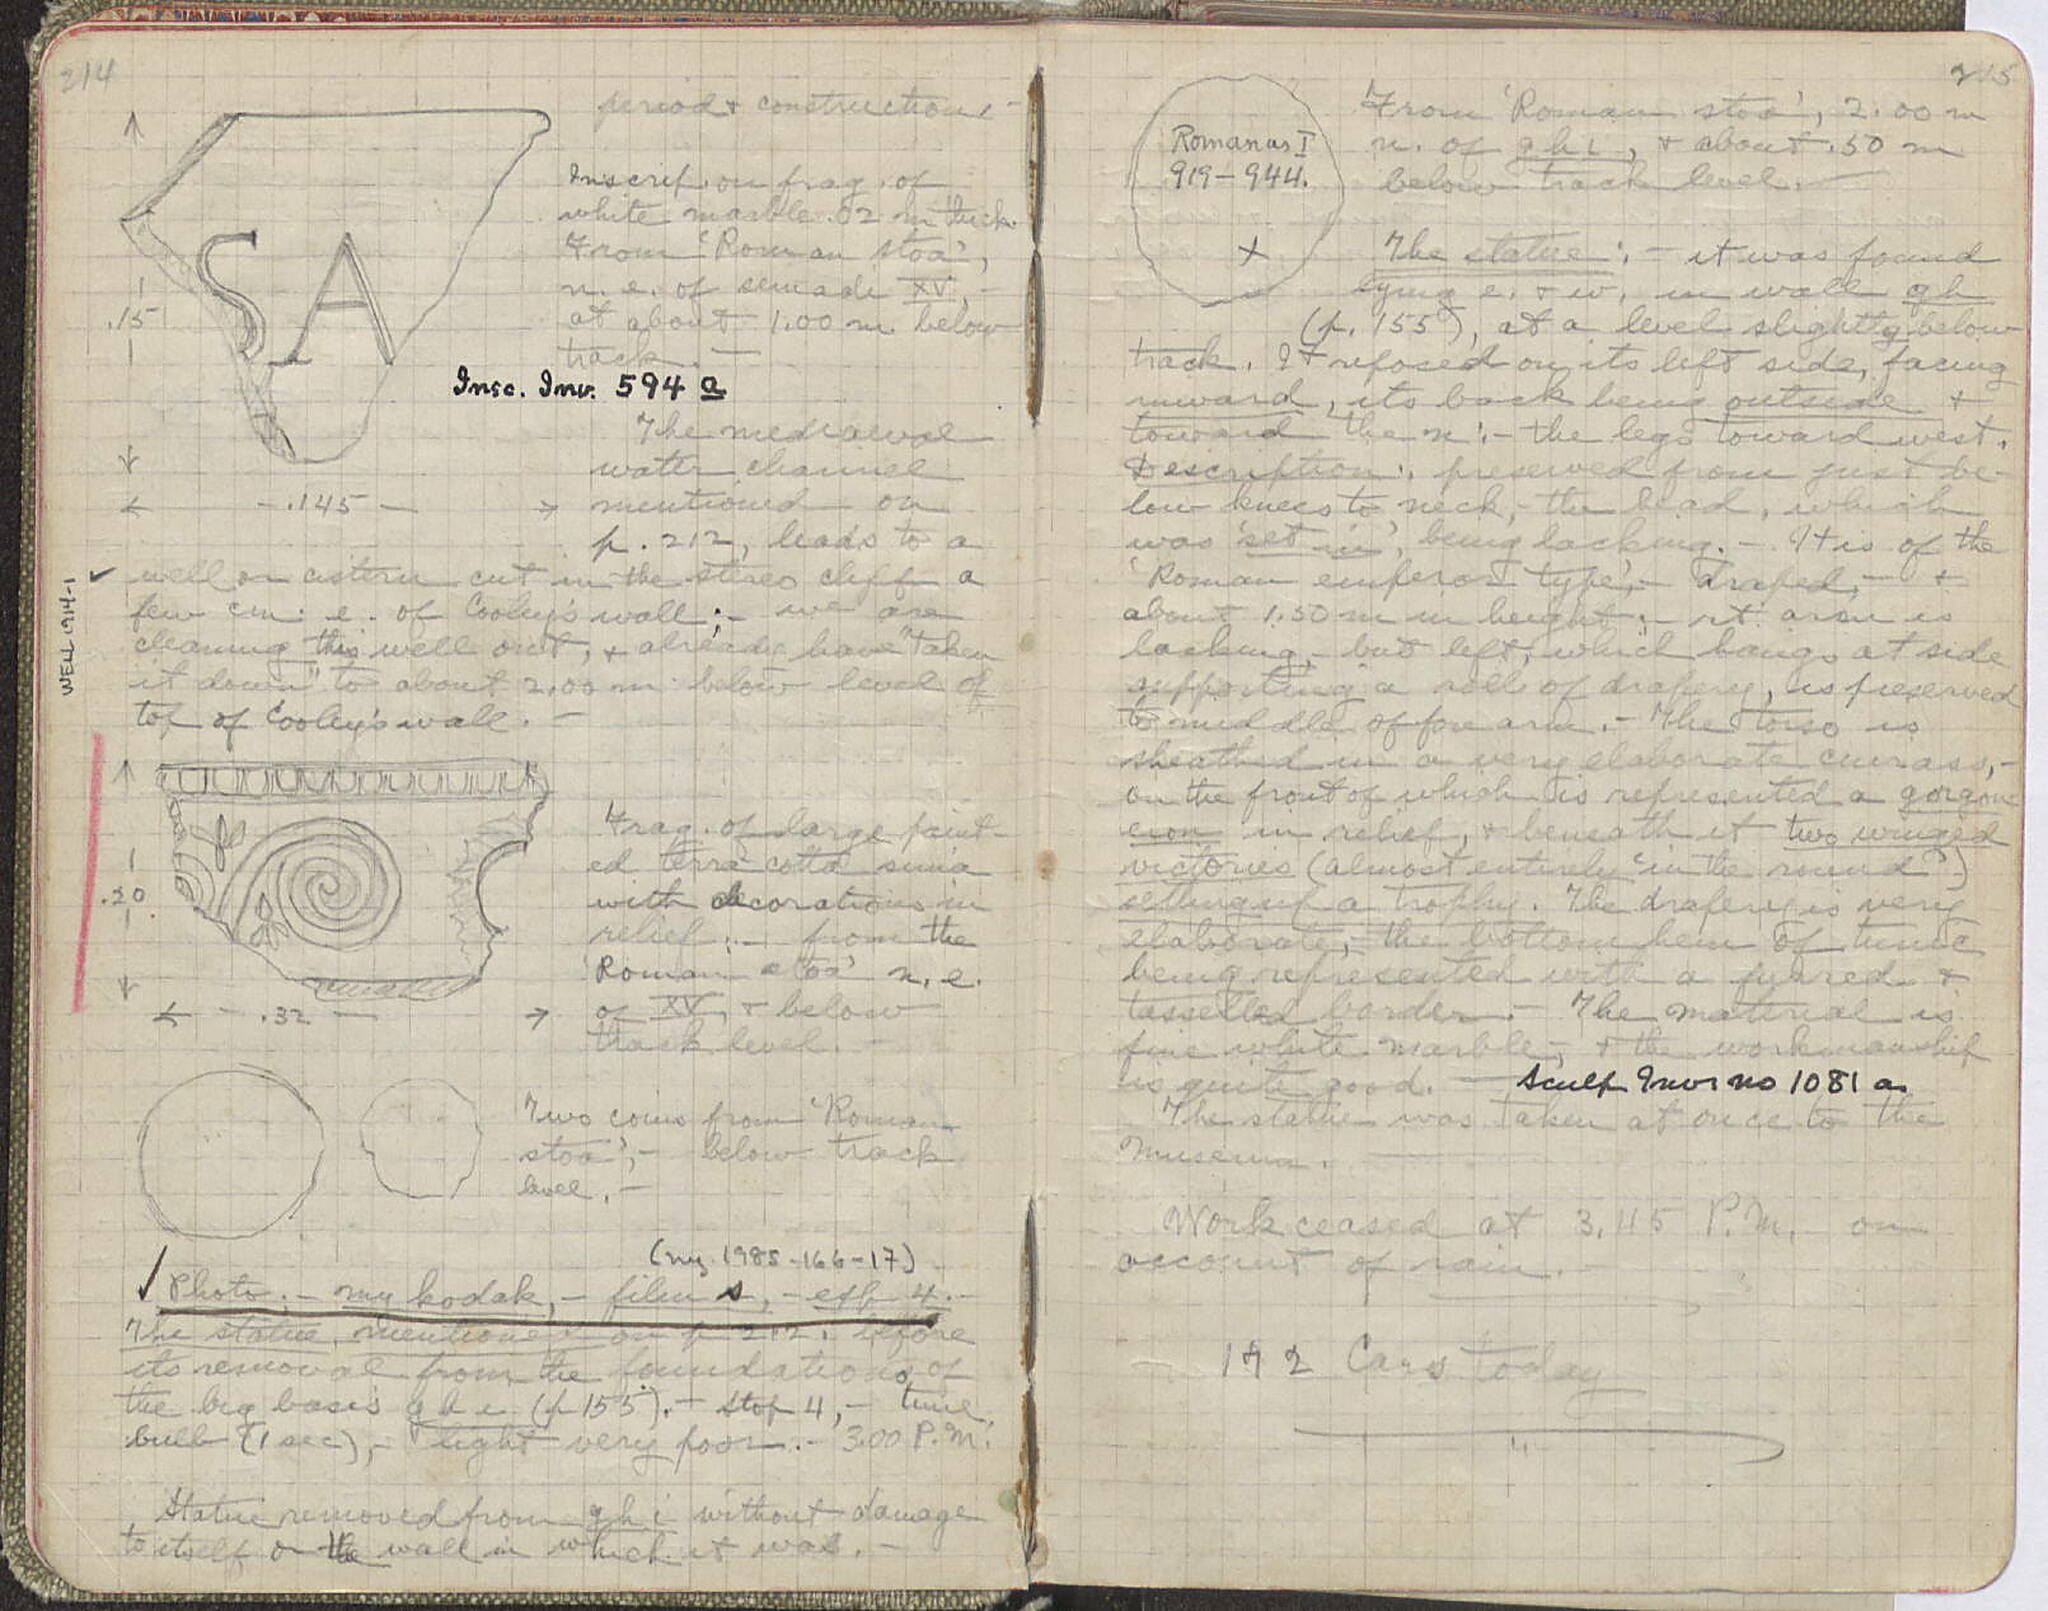 214
period & construction. -
Inscription frag. of
white marble .02 m thick.
From 'Roman stoa',
n. e. of semadi XV, -
at about 1.00 m. below
track. -
SA
.15
.145
Insc. Inv. 594 a
The mediaeval
water channel
mentioned on
p. 212, leads to a
well or cistern cut in the stereo cliff a
few cm. e. of Cooley's wall; - we are
cleaning this well out, & already have "taken
it down" to about 2.00 m. below level of
top of Cooley's wall. -
WELL 1914-1
Frag. of large paint-
ed terra cotta sima
with decorations in
relief; - from the
'Roman stoa' n. e.
of XV, & below
track level. -
.20
.32
Two coins from 'Roman
stoa', - below track
level. -
(neg. 1985-166-17)
Photo. - my kodak, - film s, - exp 4. -
The statue, mentioned on p 212. before
its removal from the foundations of
the big basis g h i (p 155). - stop 4, - time,
bulb (1 sec), - light very poor. - 3.00 P.M.
Statue removed from g h i without damage
to itself or the wall in which it was. -
215
Romanus I
919-944.
+
From 'Roman stoa', 2.00 m
n. of g h i, & about .50 m
below track level. -
The statue: - it was found
lying e. & w. in wall gh
(p. 155), at a level slightly below
track. It reposed on its left side, facing
inward, its back being outside &
toward the n: - the legs toward west.
Description: preserved from just be-
low knees to neck, - the head, which
was 'set in', being lacking. - It is of the
'Roman emperor type', - draped, - &
about 1.50 m in height; - rt. arm is
lacking, - but left, which hangs at side
supporting a roll of drapery, is preserved
to middle of fore arm. - The torso is
sheathed in a very elaborate cuirass, -
on the front of which is represented a gorgon-
eion in relief, & beneath it two winged
victories (almost entirely "in the round")
setting up a trophy. The drapery is very
elaborate, - the bottom hem of tunic
being represented with a &
tasselled border. - The material is
fine white marble, & the workmanship
is quite good. - Sculp Inv. no 1081 a
The statue was taken at once to the
Museum. -
Work ceased at 3.45 P.M. on
account of rain. -
192 Cars today